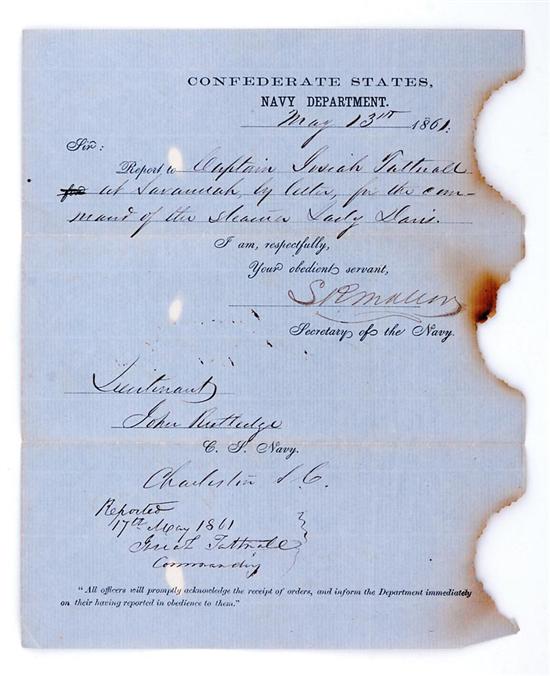 CONFEDERATE STATES,
NAVY DEPARTMENT.
May 13th 1861.
Sir:
Report to Captain Josiah Tattnall
at Savannah, by letter, for the com-
mand of the steamer Lady Davis.
I am, respectfully,
Your obedient servant,
S R Mallory
Secretary of the Navy.
Lieutenant
John Rutledge
C. S. Navy.
Charleston S. C.
Reported
17th May 1861
Josiah Tattnall
Commanding
"All officers will promptly acknowledge the receipt of orders, and inform the Department immediately
on their having reported in obedience to them."